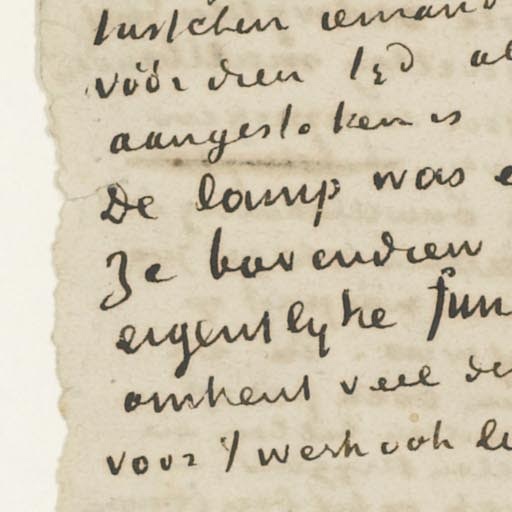 tusschen iemand
vóór dien tijd al
aangestoken is
De lamp was e
Ze bovendien
eigentlyke fun
omkent veel de
voor 't werk ook le